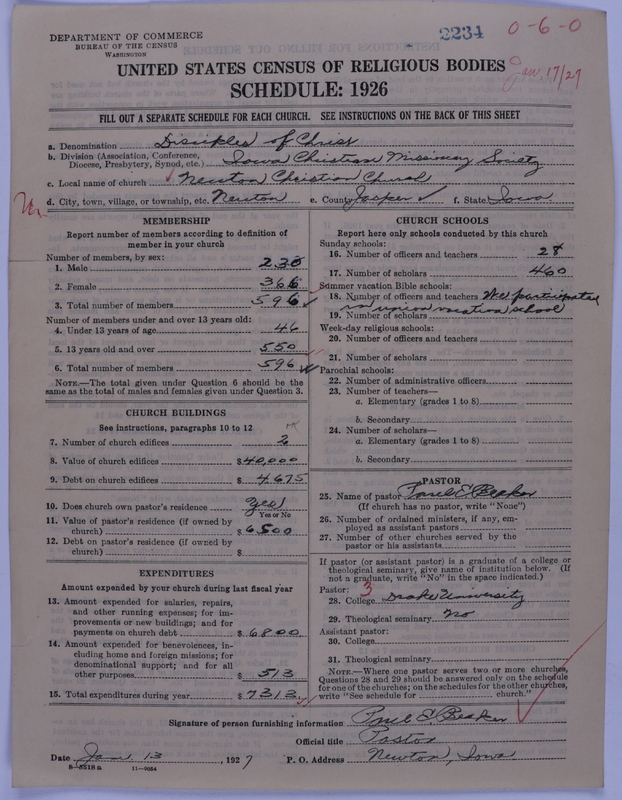 DEPARTMENT OF COMMERCE
BUREAU OF THE CENSUS
WASHINGTON
2234
0-6-0
Jan. 17/27
UNITED STATES CENSUS OF RELIGIOUS BODIES
SCHEDULE: 1926
FILL OUT A SEPARATE SCHEDULE FOR EACH CHURCH. SEE INSTRUCTIONS ON THE BACK OF THIS SHEET
a. Denomination Disciples of Christ
b. Division (Association, Conference, Diocese, Presbytery, Synod, etc.) Iowa Christian Missionary Society
c. Local name of church Newton Christian Church
d. City, town, village, or township, etc. Newton e. County Jasper f. State Iowa
MEMBERSHIP
Report number of members according to definition of
member in your church
Number of members, by sex:
1. Male 230
2. Female 366
3. Total number of members 596
Number of members under and over 13 years old:
4. Under 13 years of age 46
5. 13 years old and over 550
6. Total number of members 596
NOTE.—The total given under Question 6 should be the
same as the total of males and females given under Question 3.
CHURCH BUILDINGS
See instructions, paragraphs 10 to 12
7. Number of church edifices 2
8. Value of church edifices $ 40,000
9. Debt on church edifices $ 4675
10. Does church own pastor's residence Yes
Yes or No
11. Value of pastor's residence (if owned by
church) $ 6500
12. Debt on pastor's residence (if owned by
church) $
EXPENDITURES
Amount expended by your church during last fiscal year
13. Amount expended for salaries, repairs,
and other running expenses; for im-
provements or new buildings; and for
payments on church debt $ 6800
14. Amount expended for benevolences, in-
cluding home and foreign missions; for
denominational support; and for all
other purposes $ 513
15. Total expenditures during year $ 7313
CHURCH SCHOOLS
Report here only schools conducted by this church
Sunday schools:
16. Number of officers and teachers 28
17. Number of scholars 460
Summer vacation Bible schools:
18. Number of officers and teachers We participated
in union vacation school
19. Number of scholars
Week-day religious schools:
20. Number of officers and teachers
21. Number of scholars
Parochial schools:
22. Number of administrative officers
23. Number of teachers—
a. Elementary (grades 1 to 8)
b. Secondary
24. Number of scholars—
a. Elementary (grades 1 to 8)
b. Secondary
PASTOR
25. Name of pastor Paul E. Becker
(If church has no pastor, write "None")
26. Number of ordained ministers, if any, em-
ployed as assistant pastors
27. Number of other churches served by the
pastor or his assistants
If pastor (or assistant pastor) is a graduate of a college or
theological seminary, give name of institution below. (If
not a graduate, write "No" in the space indicated.)
Pastor: 3
28. College Drake University
29. Theological seminary No
Assistant pastor:
30. College
31. Theological seminary
NOTE.—Where one pastor serves two or more churches,
Questions 28 and 29 should be answered only on the schedule
for one of the churches; on the schedules for the other churches,
write "See schedule for church."
Signature of person furnishing information Paul E. Becker
Official title Pastor
Date Jan. 13 1927 P. O. Address Newton, Iowa
11—9054